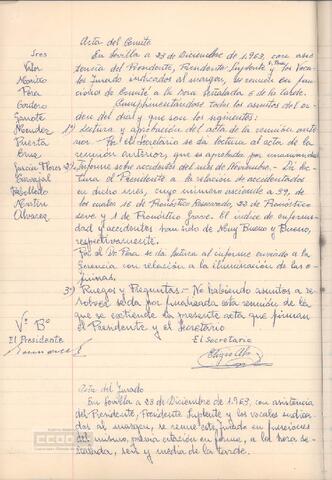 Acta del Comite
Sres
En Sevilla a 23 de Diciembre de 1.963, con asis
tencia del Presidente, Presidente Suplente y los Voca
les Jurado indicados al margen, se reunen en fun
ciones de Comité a la hora señalada 6 de la tarde.
Cumplimentandose todos los asuntos del or
den del dia y que son los siguientes:
1º) Lectura y aprobación del acta de la reunión ante
rior.- Por el Secretario se da lectura al acta de la
reunión anterior, que es aprobada por unanimidad
2º) Informe sobre accidentes del mes de Noviembre.- Da lec
tura el Presidente a la relación de accidentados
en dicho mes, cuyo número asciende a 39, de
los cuales de Pronóstico Reservado, 23 de Pronóstico
Leve y 1 de Pronóstico Grave. El indice de enferme
dad y accidentes han sido de Muy Bueno y Bueno,
respectivamente.
Por el Dr. Pera se da lectura al informe enviado a la
Gerencia con relación a la iluminación de las o
ficinas.
3º) Ruegos y Preguntas.- No habiendo asuntos a re
solver se da por finalizada esta reunión de la
que se extiende la presente acta que firman
el Presidente y el Secretario
Valor
Pera
Cordero
Mendez
Puerta
Cruz
Garcia Flores
Carvajal
Rebollado
Martin
Alvarez
Vº Bº
El Presidente
El Secretario
Acta del Jurado
En Sevilla a 23 de Diciembre de 1.963, con asistencia
del Presidente, Presidente Suplente y los vocales indica
dos al margen, se reune este Jurado en funciones
del mismo, previa citación en forma, a la hora se
ñalada, seis y media de la tarde.
CCOO